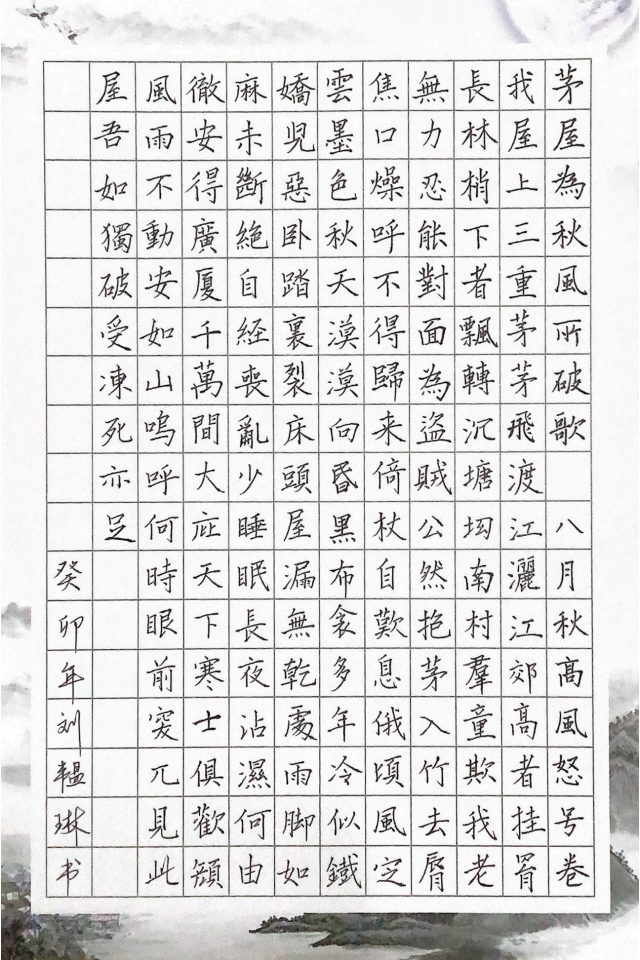 茅屋為秋風所破歌 八月秋高風怒号卷
我屋上三重茅茅飛渡江灑江郊高者挂罥
長林梢下者飄轉沉塘坳南村羣童欺我老
無力忍能對面為盜賊公然抱茅入竹去脣
焦口燥呼不得歸来倚杖自歎息俄頃風定
雲墨色秋天漠漠向昏黑布衾多年冷似鐵
嬌児惡卧踏裏裂床頭屋漏無乾處雨脚如
麻未斷絕自経喪亂少睡眠長夜沾濕何由
徹安得廣厦千萬間大庇天下寒士俱歡顏
風雨不動安如山嗚呼何時眼前突兀見此
屋吾如獨破受凍死亦足
癸卯年刘韞琳书